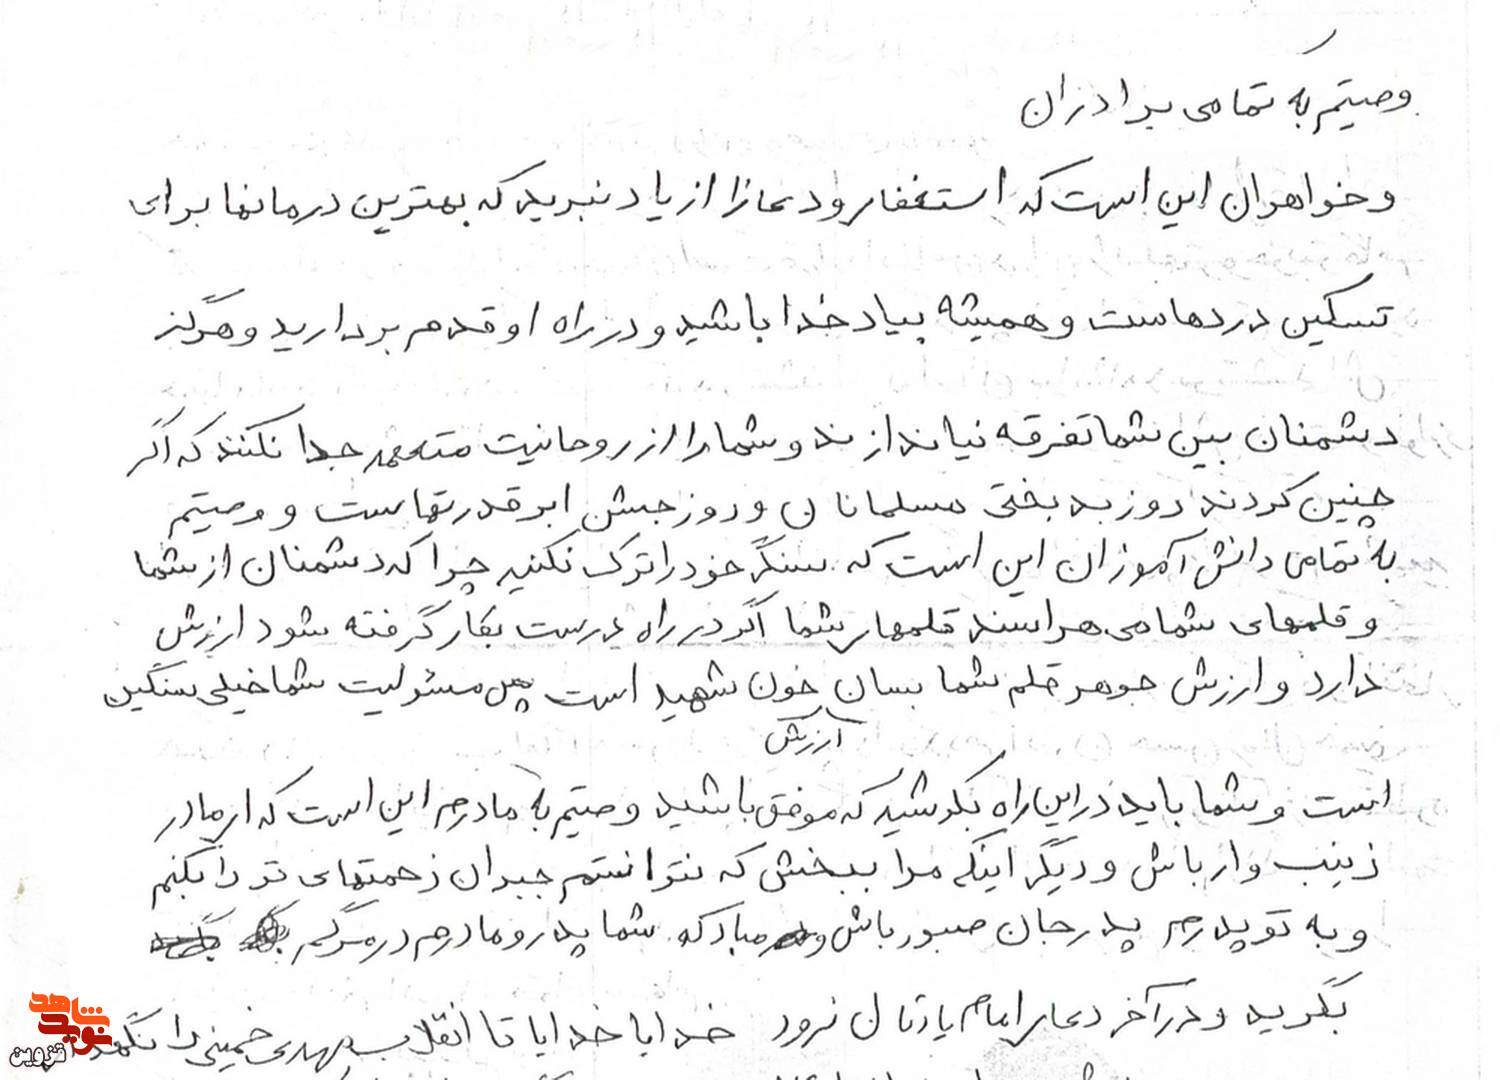 وصیتم به تمامی برادران
و خواهران این است که استغفار و دعا را از یاد نبرید که بهترین درمانها برای
تسکین دردهاست و همیشه بیاد خدا باشید و در راه او قدم بردارید و هرگز
دشمنان بین شما تفرقه نیاندازند و شما را از روحانیت متعهد جدا نکنند که اگر
چنین کردند روز بدبختی مسلمانان و روز جشن ابرقدرتهاست و وصیتم
به تمامی دانش آموزان این است که سنگر خود را ترک نکنید چرا که دشمنان از شما
و قلمهای شما می هراسند قلمهای شما اگر در راه درست بکار گرفته شود ارزش
دارد و ارزش جوهر قلم شما بسان ارزش خون شهید است پس مسئولیت شما خیلی سنگین
است و شما باید در این راه بکوشید که موفق باشید وصیتم به مادرم این است که ای مادر
زینب وار باش و دیگر اینکه مرا ببخش که نتوانستم جبران زحمتهای تو را بکنم
و به تو پدرم پدر جان صبور باش و مبادا که شما پدر و مادرم در مرگم
بگرید و در آخر دعای امام یادتان نرود خدایا خدایا تا انقلاب مهدی خمینی را نگهدار
شاهد
نوید
قزوین